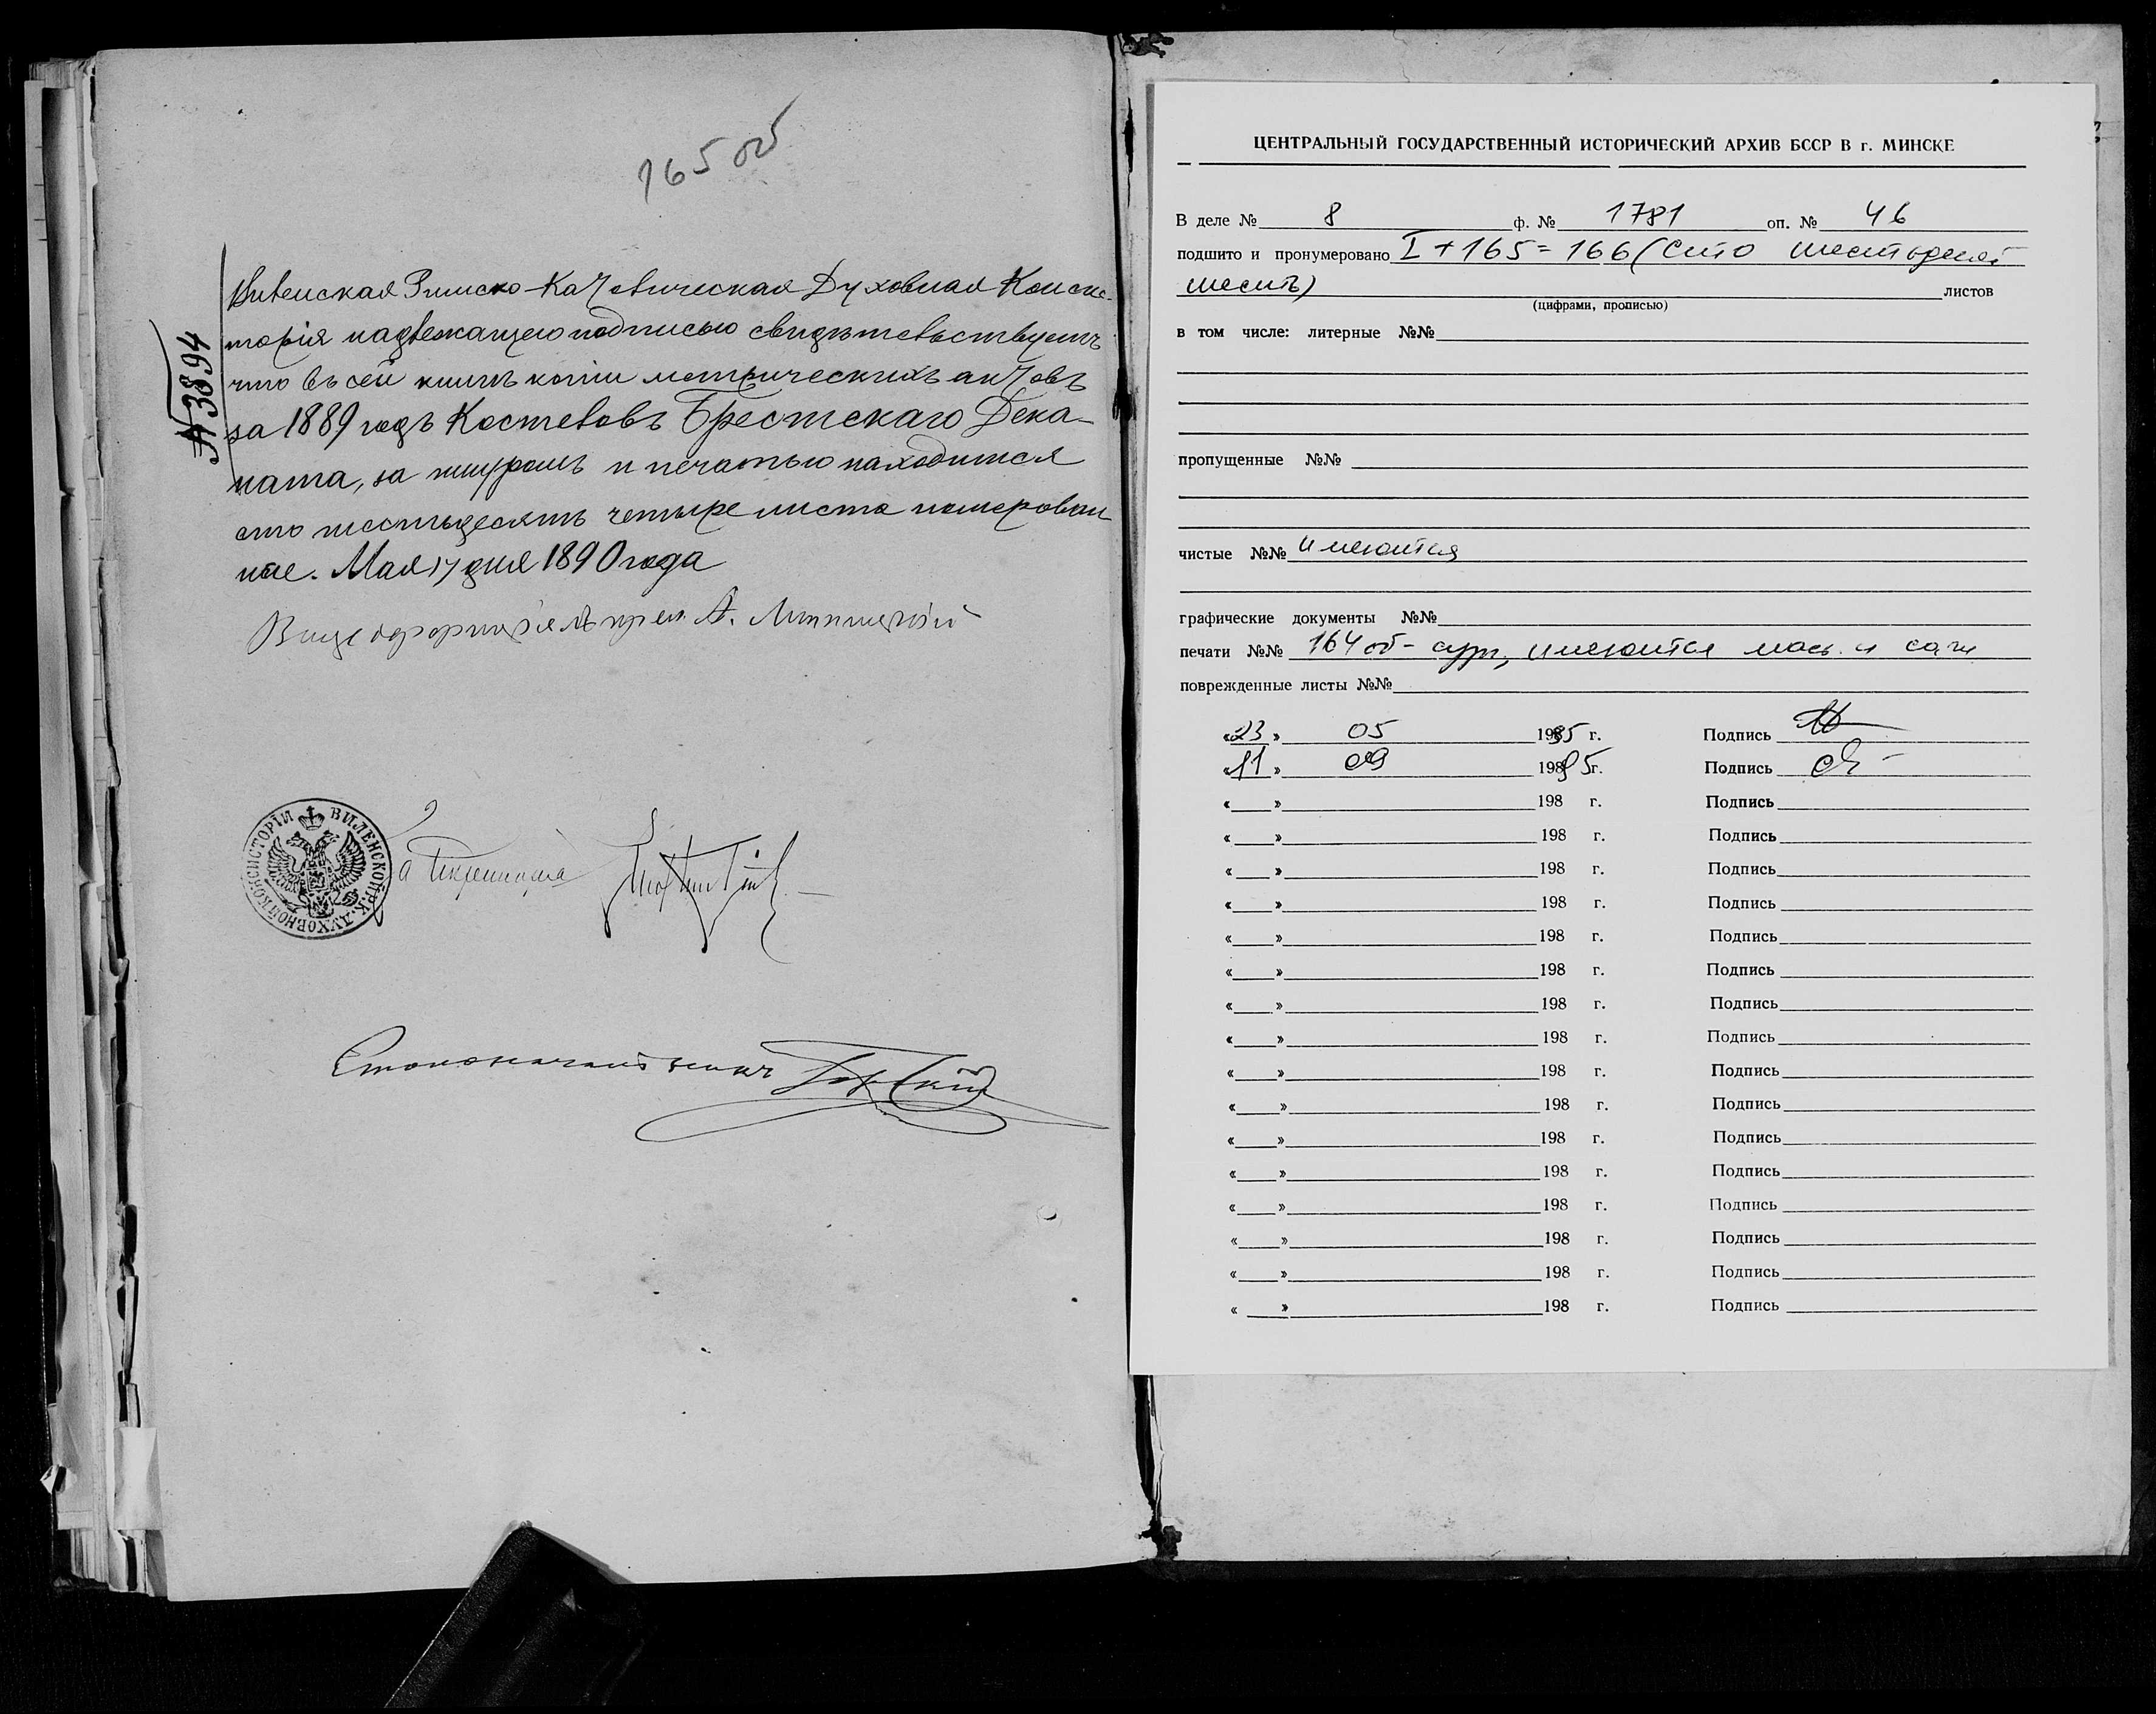 165 об
№ 3894
Виленская Римско-Католическая Духовная Консис-
торія надлежащею подписью свидѣтельствуетъ
что въ сей книгѣ копіи метрическихъ актовъ
за 1889 годъ Костеловъ Брестскаго Дека-
ната, за шнуромъ и печатью находится
сто шестьдесятъ четыре листа номерован
ные. Мая 17 дня 1890 года
Вице
ВИЛЕНСКОЙ Р. К. ДУХОВНОЙ КОНСИСТОРІИ
За Секретаря
Столоначальникъ
ЦЕНТРАЛЬНЫЙ ГОСУДАРСТВЕННЫЙ ИСТОРИЧЕСКИЙ АРХИВ БССР В г. МИНСКЕ
В деле № 8 ф. № 1781 оп. № 46
подшито и пронумеровано I + 165 = 166 (сто шестьдесят
шесть) листов
(цифрами, прописью)
в том числе: литерные №№
пропущенные №№
чистые №№ имеются
графические документы №№
печати №№ 164 об - сург., имеются маст. и сажи
поврежденные листы №№
«23» 05 1985 г. Подпись
«11» 09 1985 г. Подпись
«___» 198 г. Подпись
«___» 198 г. Подпись
«___» 198 г. Подпись
«___» 198 г. Подпись
«___» 198 г. Подпись
«___» 198 г. Подпись
«___» 198 г. Подпись
«___» 198 г. Подпись
«___» 198 г. Подпись
«___» 198 г. Подпись
«___» 198 г. Подпись
«___» 198 г. Подпись
«___» 198 г. Подпись
«___» 198 г. Подпись
«___» 198 г. Подпись
«___» 198 г. Подпись